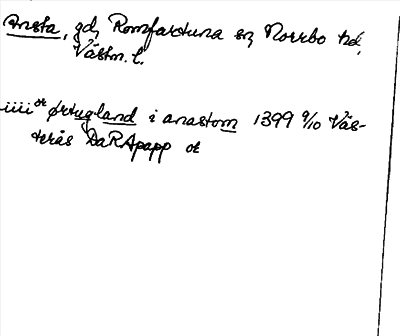 Ansta, gd, Romfartuna sn, Norrbo hd,
Västm. l.
iiii or ørtugland i anastom 1399 9/10 Väs-
terås DaRApapp or